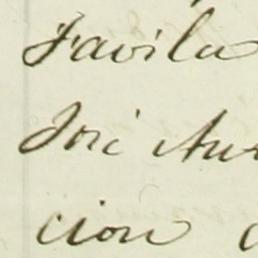 Favila
José Au
cion